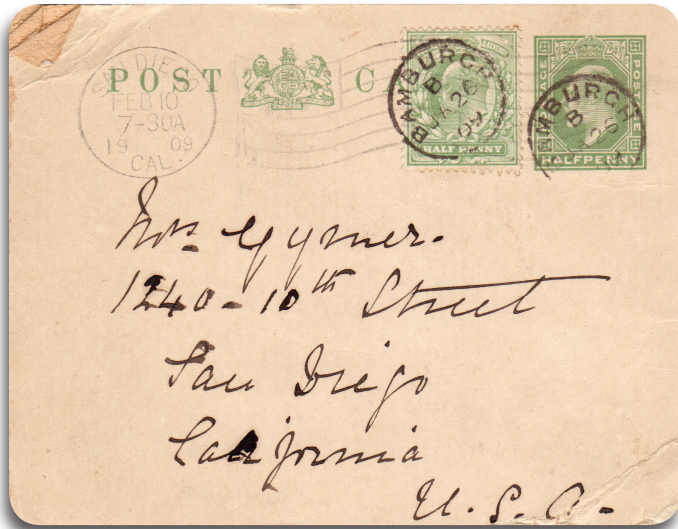 SAN DIEGO
FEB 10
7-30A
19 09
CAL.
POST C
BAMBURGH
B
JA 26
09
HALFPENNY
BAMBURGH
B
26
POSTAGE
HALFPENNY
Mrs Gymer.
1240-10th Street
San Diego
California
U.S.A.